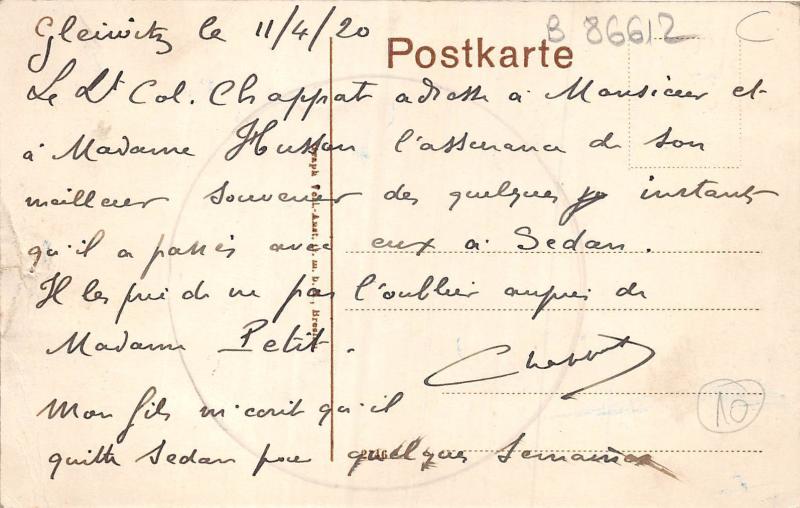 Gleiwitz le 11/4/20
B 86612
C
Postkarte
Le Lt Col. Chappat adresse à Monsieur et
à Madame Husson l'assurance de son
meilleur souvenir des quelques instants
qu'il a passés avec eux à Sedan.
Il les prie de ne pas l'oublier auprès de
Madame Petit.
Chappat
Mon fils m'écrit qu'il
quitte Sedan pour quelques semaines
10